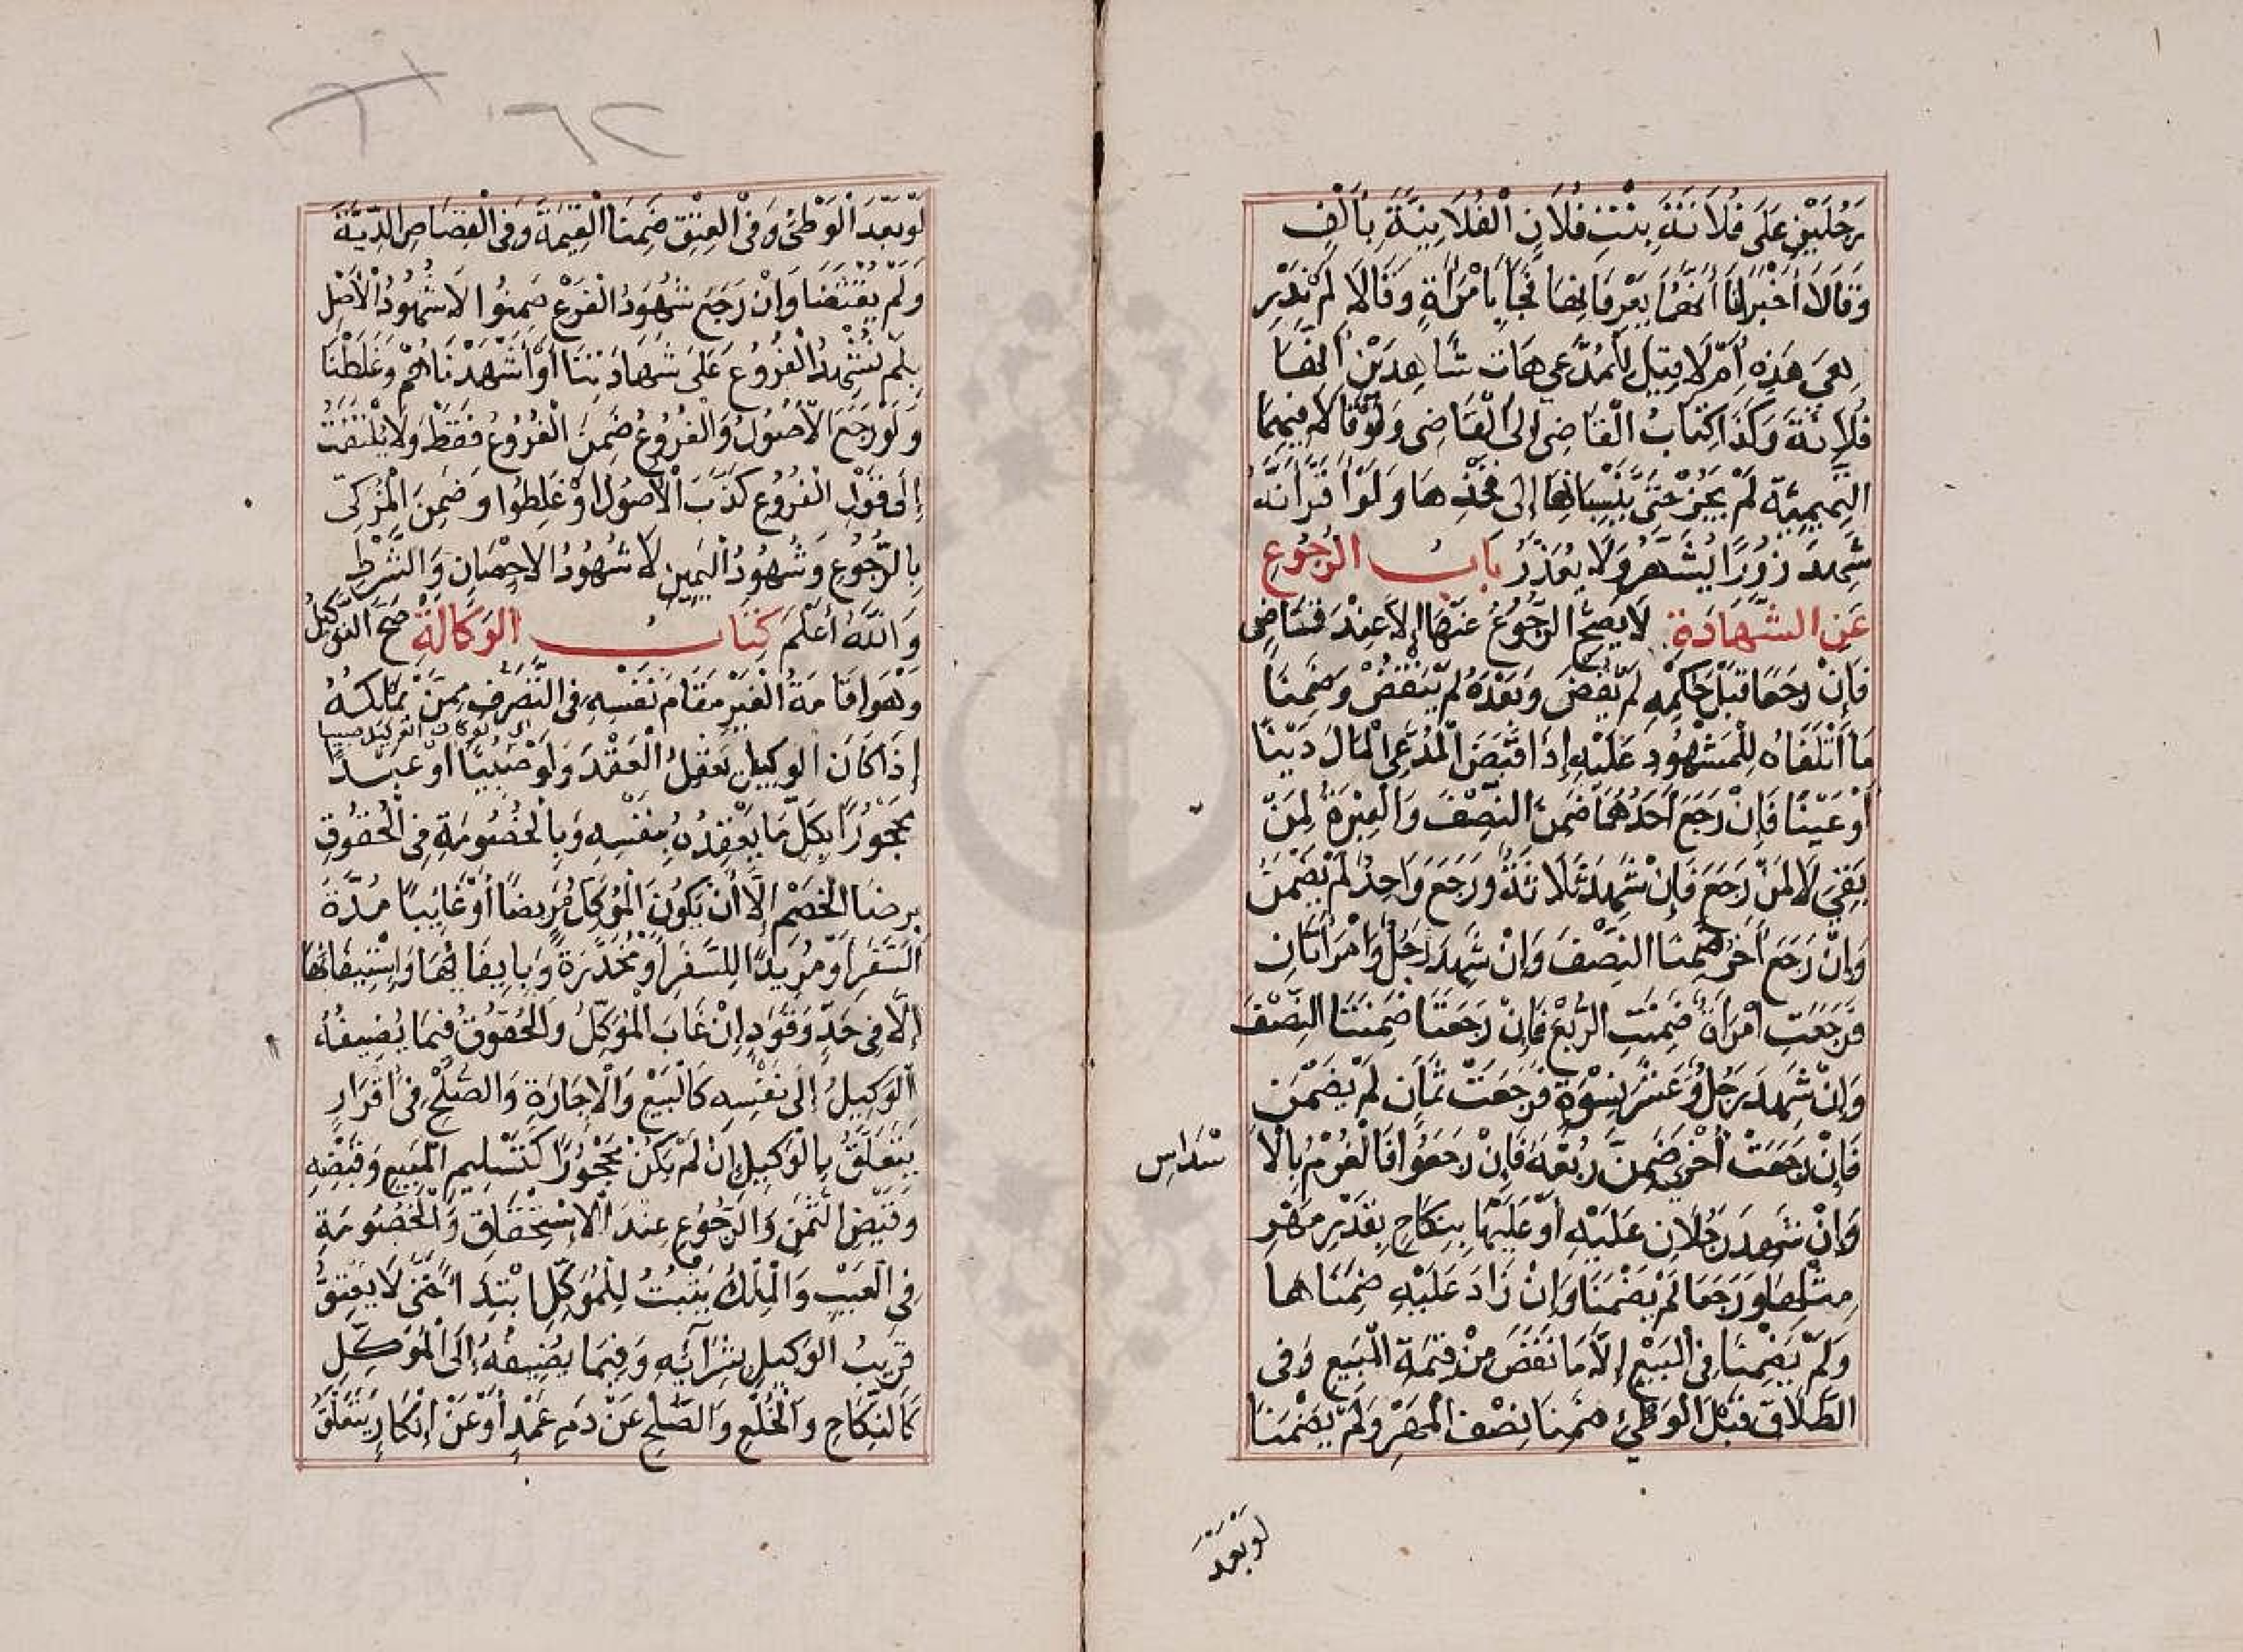 رَجُلَيْنِ عَلَى فُلَانَةَ بِنْتِ فُلَانِ الْفُلَانِيَّةِ بِأَلْفٍ
وَقَالَا أَخْبَرَانَا أَنَّهُمَا يَعْرِفَانِهَا فَجَاءَ بِامْرَأَةٍ وَقَالَا لَمْ نَدْرِ
هِىَ هَذِهِ أَمْ لَا قِيلَ لِلْمُدَّعِي هَاتِ شَاهِدَيْنِ أَنَّهَا
فُلَانَةَ وَكَذَا كِتَابُ الْقَاضِي إِلَى الْقَاضِي وَلَوْ قَالَا فِيهِمَا
التَّمِيمِيَّة لَمْ يَجُزْ حَتَّى يَنْسِبَانِهَا إِلَى فَخْذِهَا وَلَوْ أَقَرَّ أَنَّهُ
شَهِدَ زُورًا يُشَهَّرُ وَلَا يُعَذَّرُ بَابُ الرُّجُوعِ
عَنِ الشَّهَادَةِ لَا يَصِحُّ الرُّجُوعُ عَنْهَا إِلَّا عِنْدَ قَاضِي
فَإِنْ رَجَعَا قَبْلَ حُكْمِهِ لَمْ يُقْضَ وَبَعْدَهُ لَمْ يُنْقَضْ وَضَمِنَا
مَا أَتْلَفَاهُ لِلْمَشْهُودِ عَلَيْهِ إِذَا قَبَضَ الْمُدَّعِي الْمَالَ دَيْنًا
أَوْ عَيْنًا فَإِنْ رَجَعَ أَحَدُهُمَا ضَمِنَ النِّصْفَ وَالْعِبْرَةُ لِمَنْ
بَقِيَ لَا لِمَنْ رَجَعَ فَإِنْ شَهِدَ ثَلَاثَةٌ وَرَجَعَ وَاحِدٌ لَمْ يَضْمَنْ
وَإِنْ رَجَعَ آخَرُ ضَمِنَا النِّصْفَ وَإِنْ شَهِدَ رَجُلٌ وَامْرَأَتَانِ
فَرَجَعَتِ امْرَأَةٌ ضَمِنَتِ الرُّبْعَ فَإِنْ رَجَعَتَا ضَمِنَتَا النِّصْفَ
وَإِنْ شَهِدَ رَجُلٌ وَعَشْرُ نِسْوَةٍ فَرَجَعَتْ ثَمَانٍ لَمْ يَضْمَنَّ
فَإِنْ رَجَعَتْ أُخْرَى ضَمِنَّ رُبْعَهُ فَإِنْ رَجَعُوا فَالْغُرْمُ بِالْأَ
سْدَاسِ
وَإِنْ شَهِدَ رَجُلَانِ عَلَيْهِ أَوْ عَلَيْهَا بِنِكَاحٍ بِقَدْرِ مَهْرِ
مِثْلِهَا وَرَجَعَا لَمْ يَضْمَنَا وَإِنْ زَادَ عَلَيْهِ ضَمِنَاهَا
وَلَمْ يَضْمَنَا فِي الْبَيْعِ إِلَّا مَا نَقَصَ مِنْ قِيمَةِ الْمَبِيعِ وَفِي
الطَّلَاقِ قَبْلَ الْوَطْئِ ضَمِنَا نِصْفَ الْمَهْرِ وَلَمْ يَضْمَنَا
لَوْ بَعْدَ
لَوْ بَعْدَ الْوَطْئِ وَفِي الْعِتْقِ ضَمِنَا الْقِيمَةَ وَفِي الْقِصَاصِ الدِّيَةَ
وَلَمْ يُقْتَصَّا وَإِنْ رَجَعَ شُهُودُ الْفَرْعِ ضَمِنُوا لَا شُهُودُ الْأَصْلِ
بِلَمْ نُشْهِدُ الْفُرُوعَ عَلَى شَهَادَتِنَا أَوْ أَشْهَدْنَاهُمْ وَغَلَطْنَا
وَلَوْ رَجَعَ الْأُصُولُ وَالْفُرُوعُ ضَمِنَ الْفُرُوعُ فَقَطْ وَلَا يُلْتَفَتُ
إِلَى قَوْلِ الْفُرُوعِ كَذَبَ الْأُصُولُ أَوْ غَلِطُوا وَضَمِنَ الْمُزَكِّي
بِالرُّجُوعِ وَشُهُودُ الْيَمِينِ لَا شُهُودُ الْإِحْصَانِ وَالشَّرْطِ
وَاللَّهُ أَعْلَمَ كِتَابُ الْوَكَالَةِ صَحَّ التَّوْكِيلُ
وَهُوَ إِقَامَةُ الْغَيْرِ مَقَامَ نَفْسِهِ فِي التَّصَرُّفِ مِمَّنْ يَمْلِكُهُ
إِذَا كَانَ الْوَكِيلُ يَعْقِلُ الْعَقْدَ وَلَوْ صَبِيًّا أَوْ عَبْدًا
مَحْجُورًا بِكُلِّ مَا يَعْقِدُهُ بِنَفْسِهِ وَبِالْخُصُومَةِ فِي الْحُقُوقِ
بِرِضَا الْخَصْمِ إِلَّا أَنْ يَكُونَ الْمُوَكِّلُ مَرِيضًا أَوْ غَائِبًا مُدَّةَ
السَّفَرِ أَوْ مُرِيدًا لِلسَّفَرِ أَوْ مُخَدَّرَةً وَبِإِيفَائِهَا وَاسْتِيفَائِهَا
إِلَّا فِي حَدٍّ وَقَوَدٍ إِنْ غَابَ الْمُوَكِّلُ وَالْحُقُوقُ فِيمَا يُضِيفُهُ
الْوَكِيلُ إِلَى نَفْسِهِ كَالْبَيْعِ وَالْإِجَارَةِ وَالصُّلْحِ فِي اقْرَارٍ
يَتَعَلَّقُ بِالْوَكِيلِ إِنْ لَمْ يَكُنْ مَحْجُورًا كَتَسْلِيمِ الْمَبِيعِ وَقَبْضِهِ
وَقَبْضِ الثَّمَنِ وَالرُّجُوعِ عِنْدَ الْإِسْتِحْقَاقِ وَالْخُصُومَةِ
فِي الْعَيْبِ وَالْمِلْكُ يَثْبُتُ لِلْمُوَكِّلِ ابْتِدَاءً حَتَّى لَا يَعْتِقُ
قَرِيبُ الْوَكِيلِ بِشِرَائِهِ وَفِيمَا يُضِيفُهُ إِلَى الْمُوَكِّلِ
كَالنِّكَاحِ وَالْخُلْعِ وَالصُّلْحِ عَنْ دَمِ عَمْدٍ أَوْ عَنْ إِنْكَارٍ يَتَعَلَّقُ